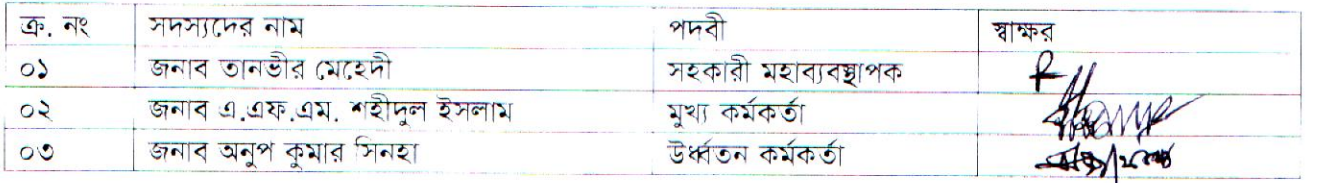 ক্র. নং সদস্যদের নাম পদবী স্বাক্ষর
০১ জনাব তানভীর মেহেদী সহকারী মহাব্যবস্থাপক
০২ জনাব এ.এফ.এম. শহীদুল ইসলাম মুখ্য কর্মকর্তা
০৩ জনাব অনুপ কুমার সিনহা উর্ধ্বতন কর্মকর্তা